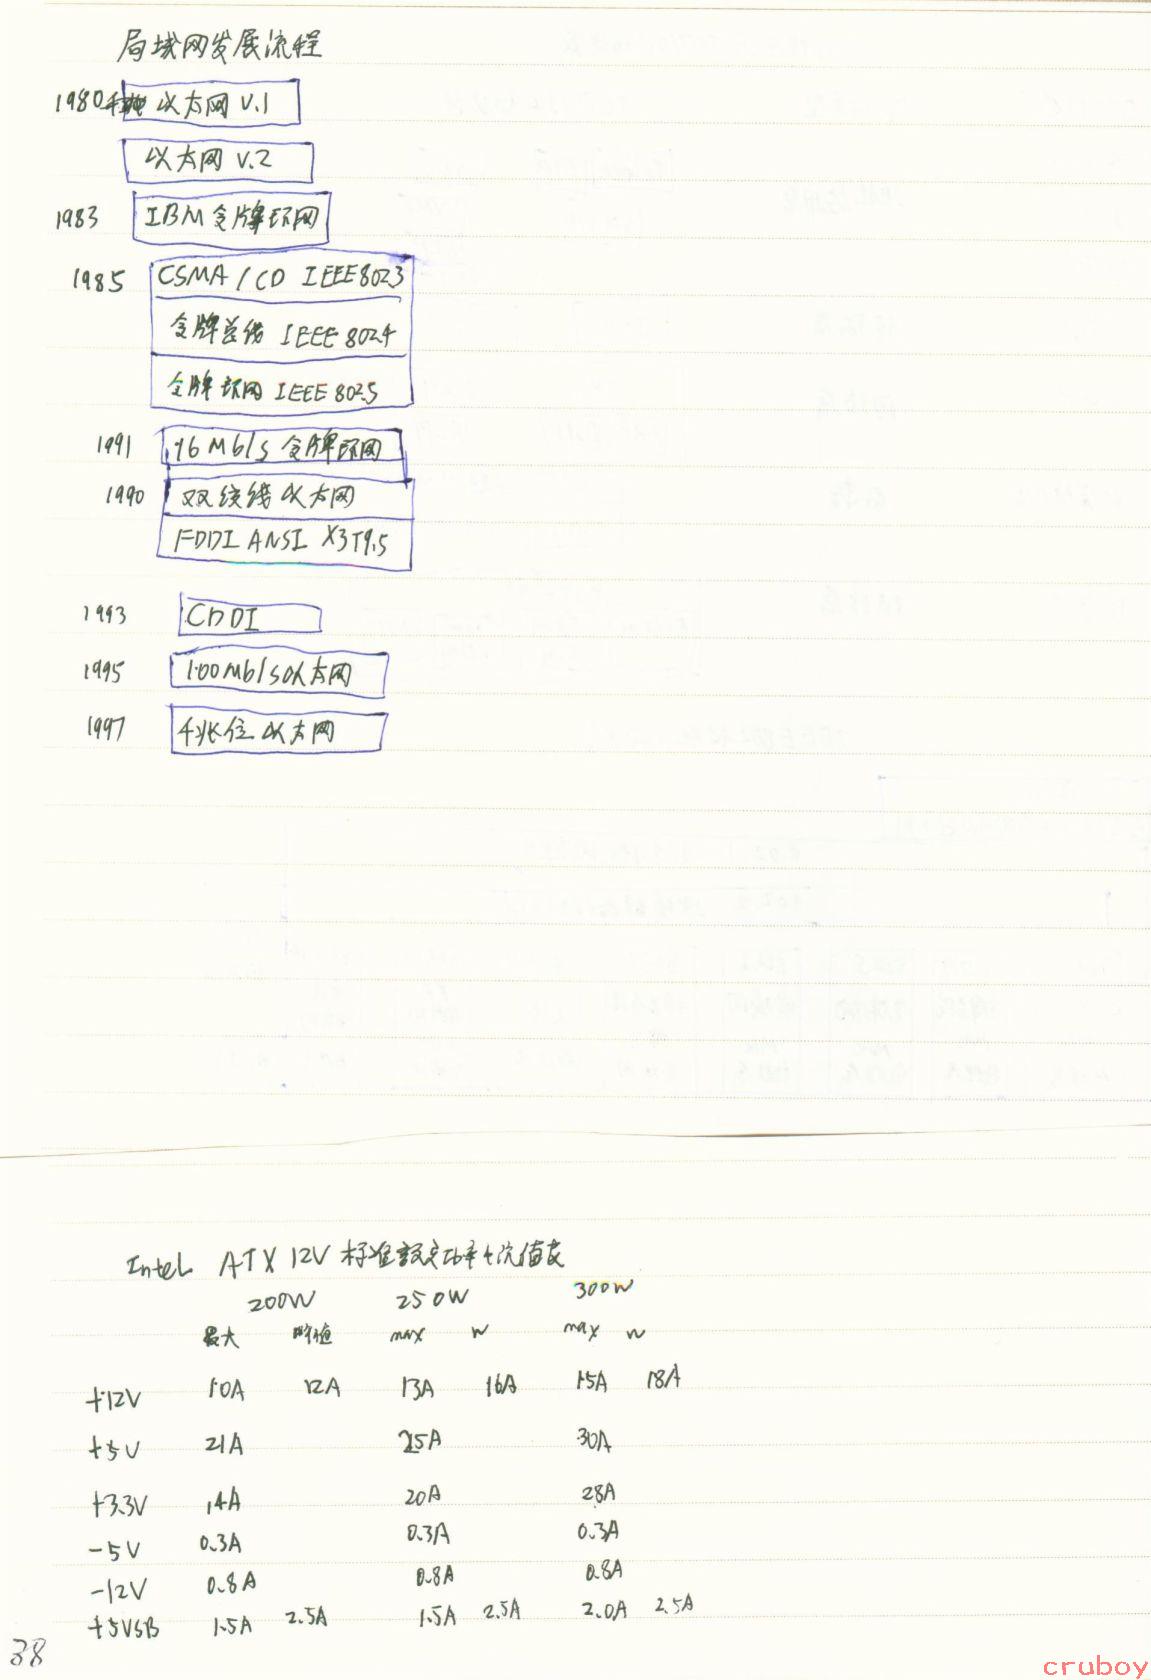 局域网发展流程
1980 以太网 V.1
以太网 V.2
1983 IBM 令牌环网
1985 CSMA/CD IEEE802.3
令牌总线 IEEE 802.4
令牌环网 IEEE 802.5
1991 16Mb/s 令牌环网
1990 双绞线以太网
FDDI ANSI X3T9.5
1993 CDDI
1995 100Mb/s以太网
1997 千兆位以太网
Intel ATX 12V 标准额定功率电流值表
200W 250W 300W
最大 峰值 max max
+12V 10A 12A 13A 16A 15A 18A
+5V 21A 25A 30A
+3.3V 14A 20A 28A
-5V 0.3A 0.3A 0.3A
-12V 0.8A 0.8A 0.8A
+5VSB 1.5A 2.5A 1.5A 2.5A 2.0A 2.5A
38
cruboy